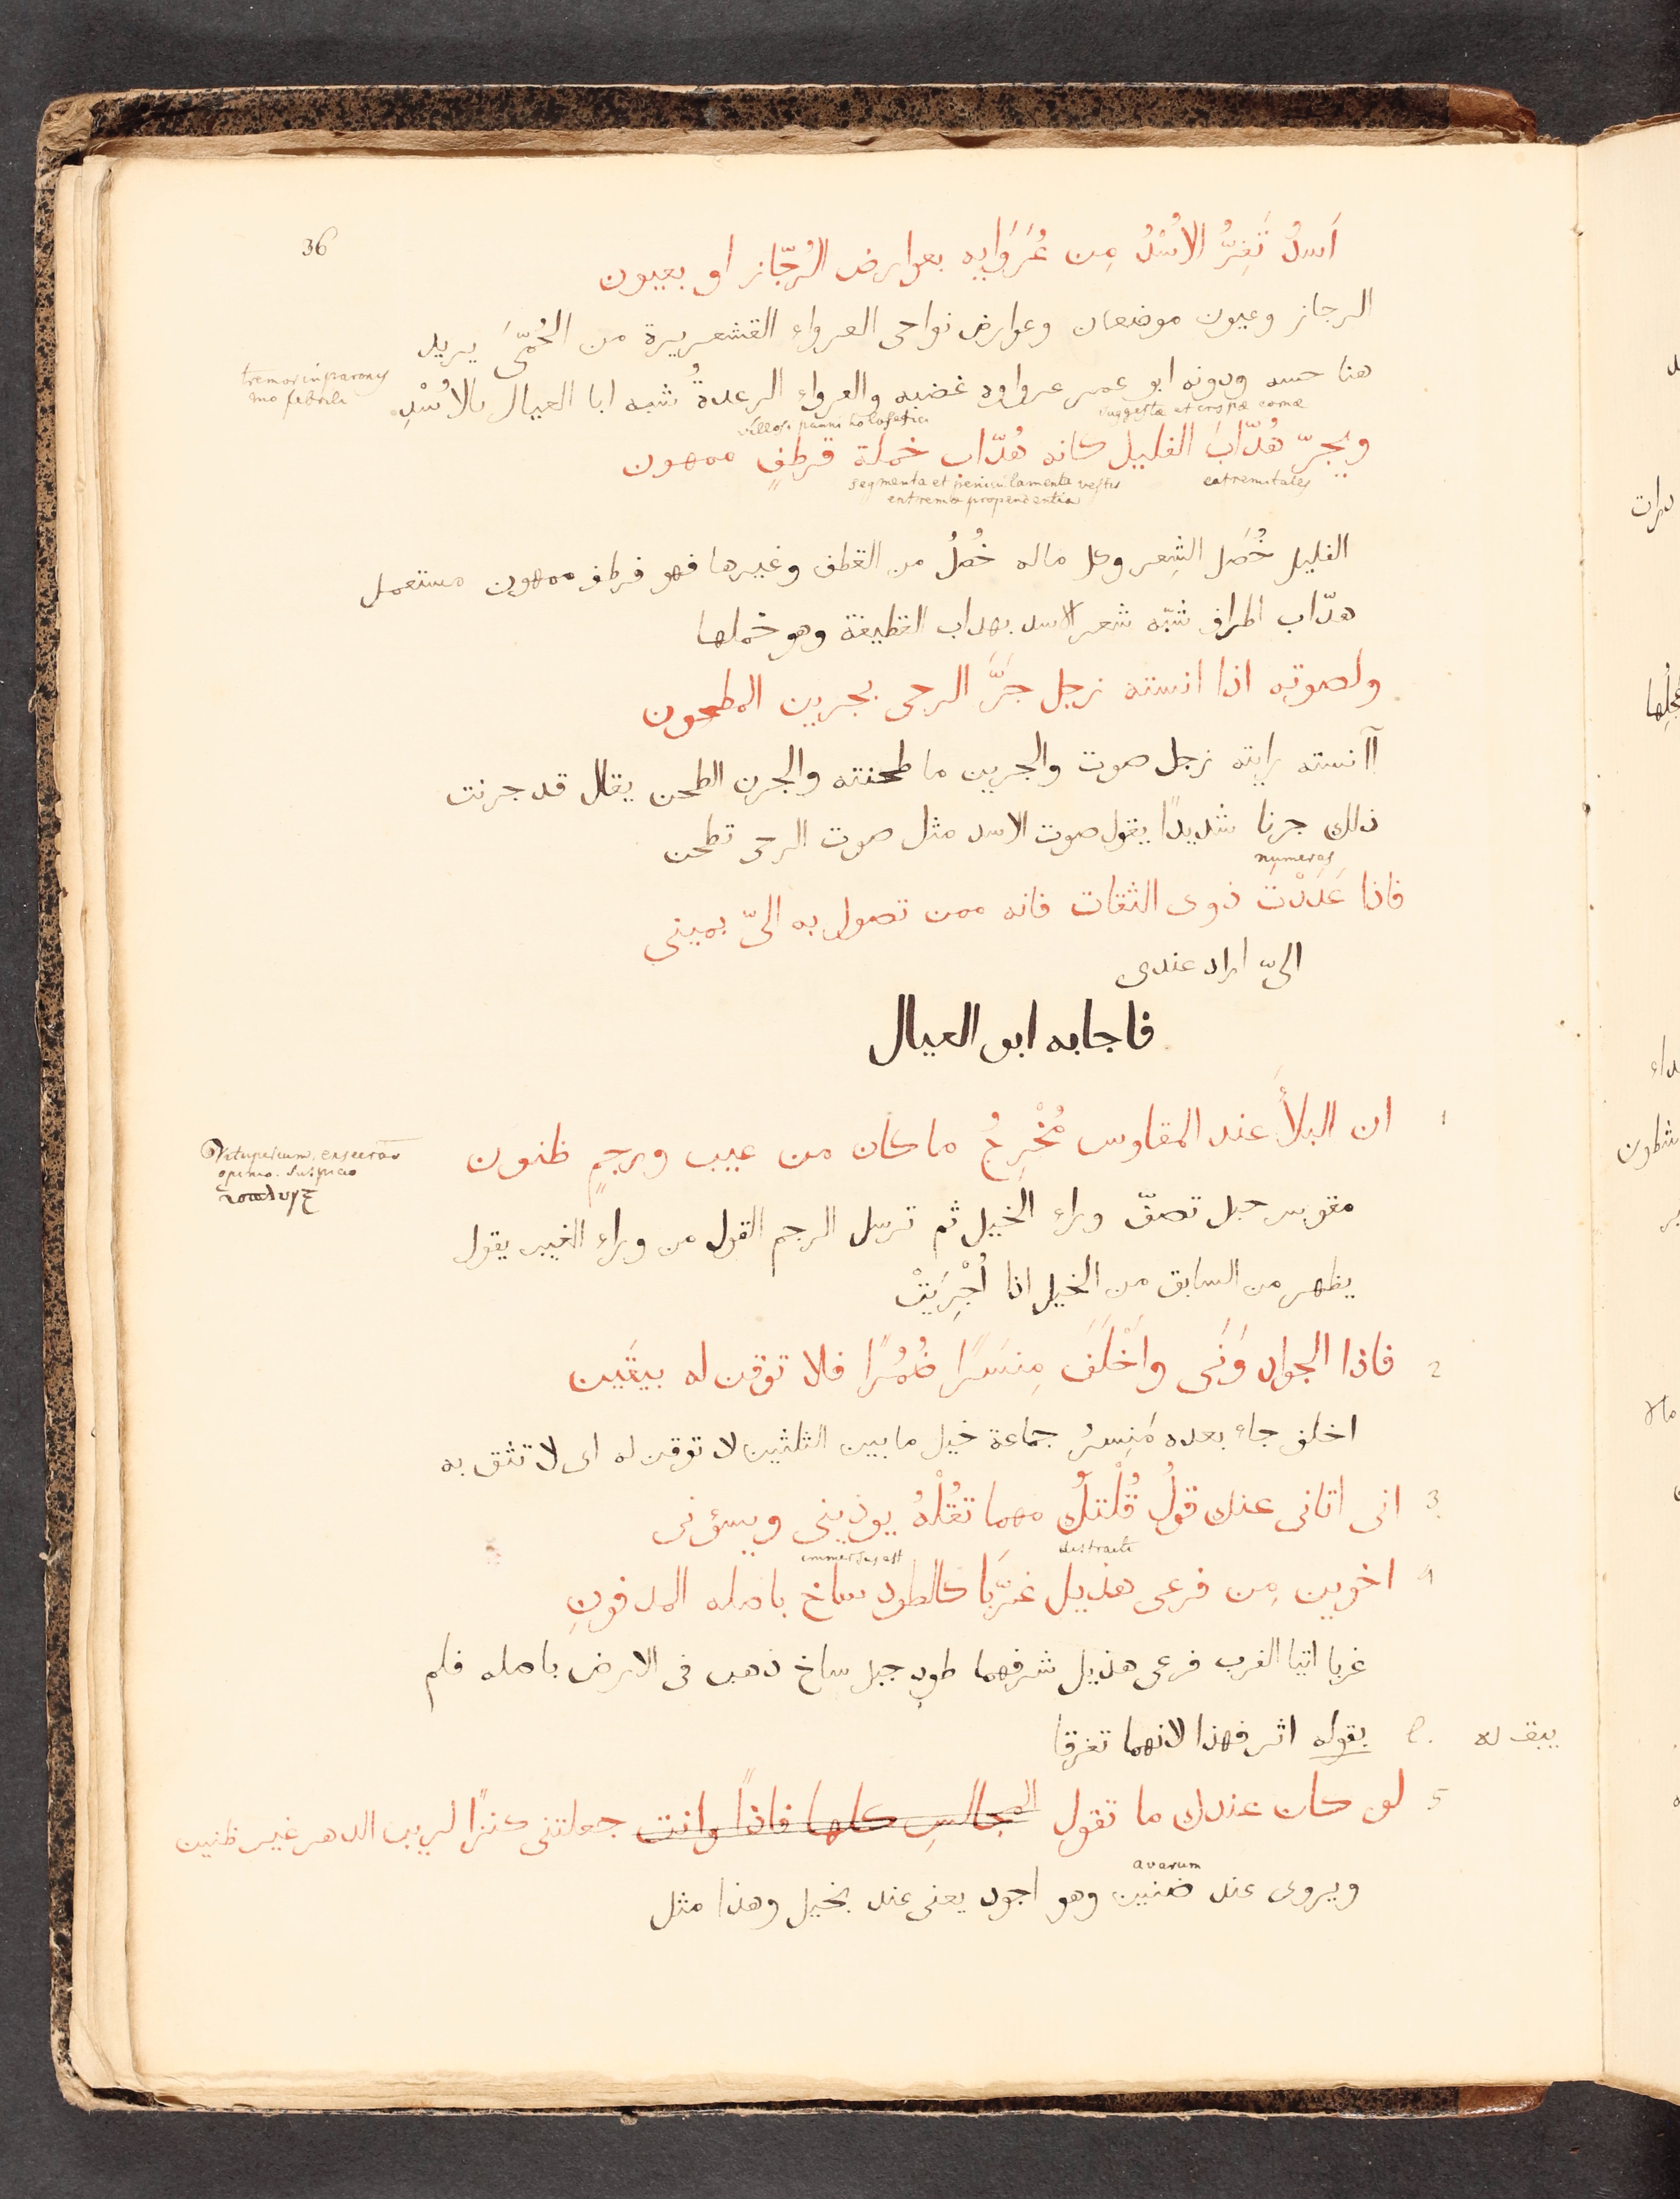 36
اَسدُ تَفِرُّ الاُسْدُ مِن عُرَوَايِه بعوارض الرُجّاز او بعيون
الرجاز وعيون موضعان وعوارض نواحى العرواء القشعريرة من الحُمَّى يريد
tremor in paroxys
mo febrili
هنا حسه ودونه ابو عمر عرواوه غضبه والعرواء الرعدةُ شبه ابا العيال بالاُسْدِ
suggesta et crispæ comæ
villosi panni holoserici
ويجرّ هُدّابَ الفليل كانه هُدّاب خملة قرطفٍ ممهون
extremitates
segmenta et peniculamenta vestis
extrema propendentia
الفليل خُصَل الشِعر وكل ماله خُصلُ من القطف وغيرها فهو قرطف ممهون مستعمل
هدّاب اطراف شبّه شعر الاسد بهداب القطيفة وهو خملها
ولصوته اذا انسته زجل جَرَّ الرحى بجرين المطحون
آانسته رايته زجل صوت والجرين ما طحنته والجرن الطحن يقال قد جرنت
ذلك جرنا شديدًا يقول صوت الاسد مثل صوت الرحى تطحن
numeras
فاذا عَدَدْتَ ذوى الثقات فانه ممن تصول به الىّ يمينى
الىّ اراد عندى
فاجابه ابو العيال
1 ان البلأَ عند المقاوس مُخْرِجُ ما كان من عيب ورجمٍ ظنون
Vituperium, exsecrao
opinio. suspicio
مقوس حبل تصفّ وراء الخيل ثم ترسل الرجم القول من وراء الغيب يقول
يظهر من السابق من الخيل اذا اُجْرِيَتْ
2 فاذا الجواد وَنَى واَخْلَفَ مِنسَرًا ضُمُرًا فلا توقن له بيقين
اخلف جاء بعده مَنِسرُ جماعة خيل ما بين الثلثين لا توقن له اى لا تثق به
3 انى اتانى عنك قولُ قُلْتَلُ مهما تَقُلْهُ يوذينى ويسؤنى
distracti
immersus est
4 اخوين مِن فرعى هذيل غرّبَا كالطود ساخ باصله المدفونِ
غربا اتيا الغرب فرعى هذيل شرفهما طود جبل ساخ ذهب فى الارض باصله فلم
يبق له
بقوله اثر فهذا لانهما تفرقا
5 لو كان عندك ما تقول المجالسِ كلها فاذاً وانت جعلتنى كنزًا لريب الدهر غير ظنين
avarum
ويروى عند ضنين وهو اجود يعنى عند بخيل وهذا مثل